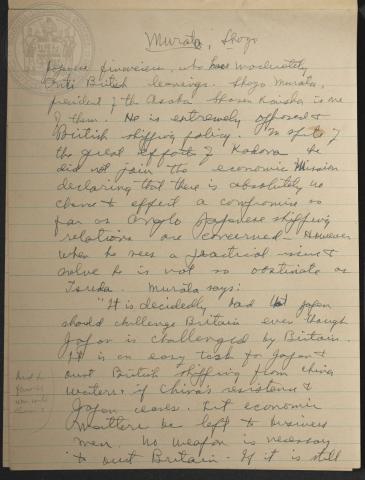 Murata, Shozo
Japanese financiers, who have moderately
Anti British leanings. Shozo Murata,
president of the Osaka Shosen Kaisha is one
of them. He is extremely opposed to
British shipping policy. In spite of
the great efforts of Kadono he
did not join the economic Mission
declaring that there is absolutely no
chance to effect a compromise so
far as Anglo Japanese shipping
relations are concerned - However
when he sees a practical issue to
solve he is not so obstinate as
Tsuda. Murata says:
"It is decidedly bad Japan
should challenge Britain even though
Japan is challenged by Britain.
It is an easy task for Japan to
oust British shipping from China
waters, if China's resistance to
Japan ceases. Let economic
matters be left to business
men. No weapon is necessary
to oust Britain. If it is still